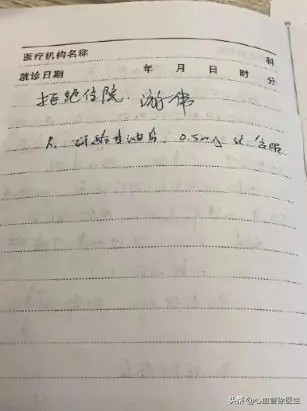 医疗机构名称
科
就诊日期 年 月 日 时 分
拒绝住院.
硝酸甘油片. 0.5mg 含服
头条 @心血管徐医生